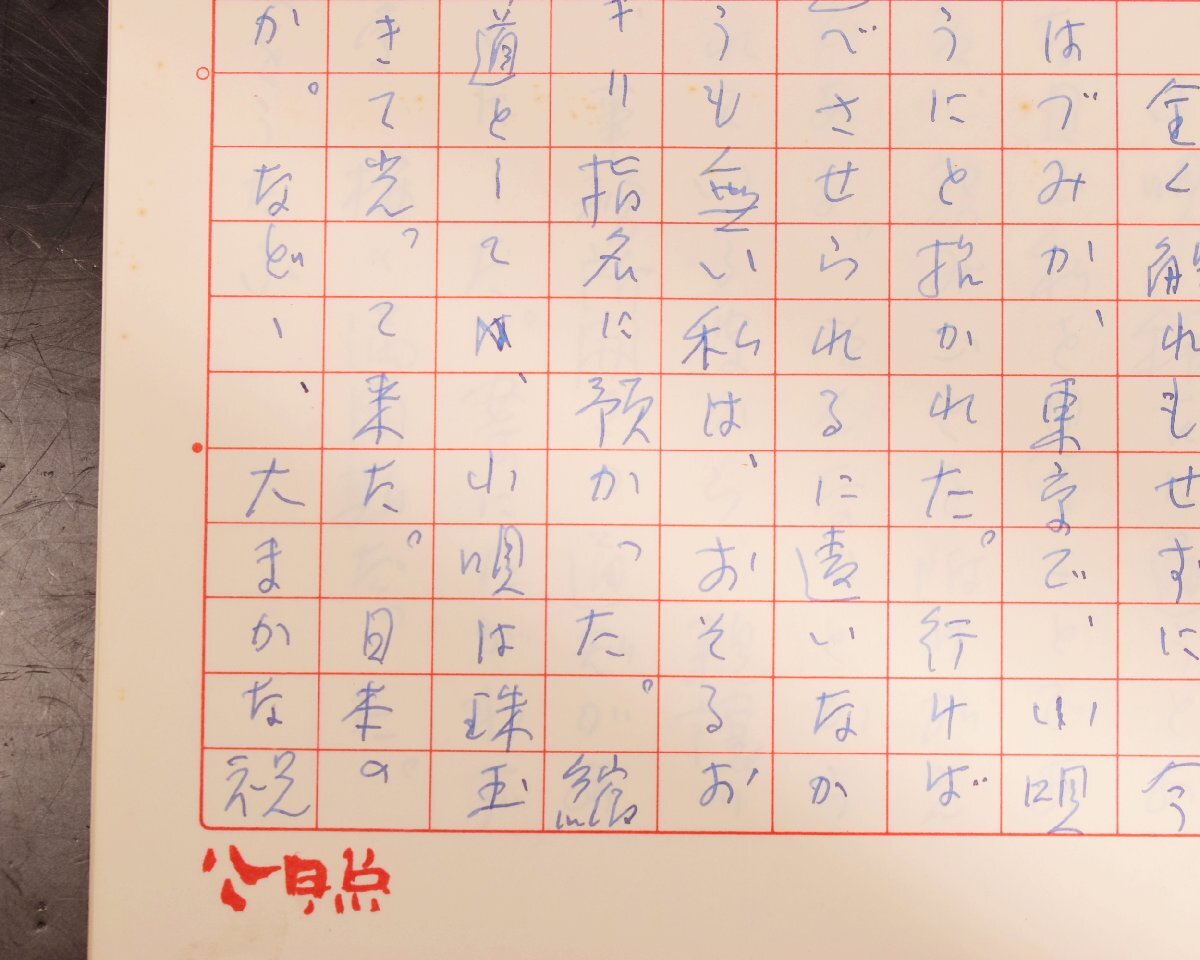 全く触れもせずに　今
はづみが、東京で、小唄
うにと招かれた。行けば
でさせられるに違いなか
うも無い私は、おそるお
キリ指名に預かった。縮
道として、小唄は珠玉
きて光って来た。日本の
か。など、、大まかな祝